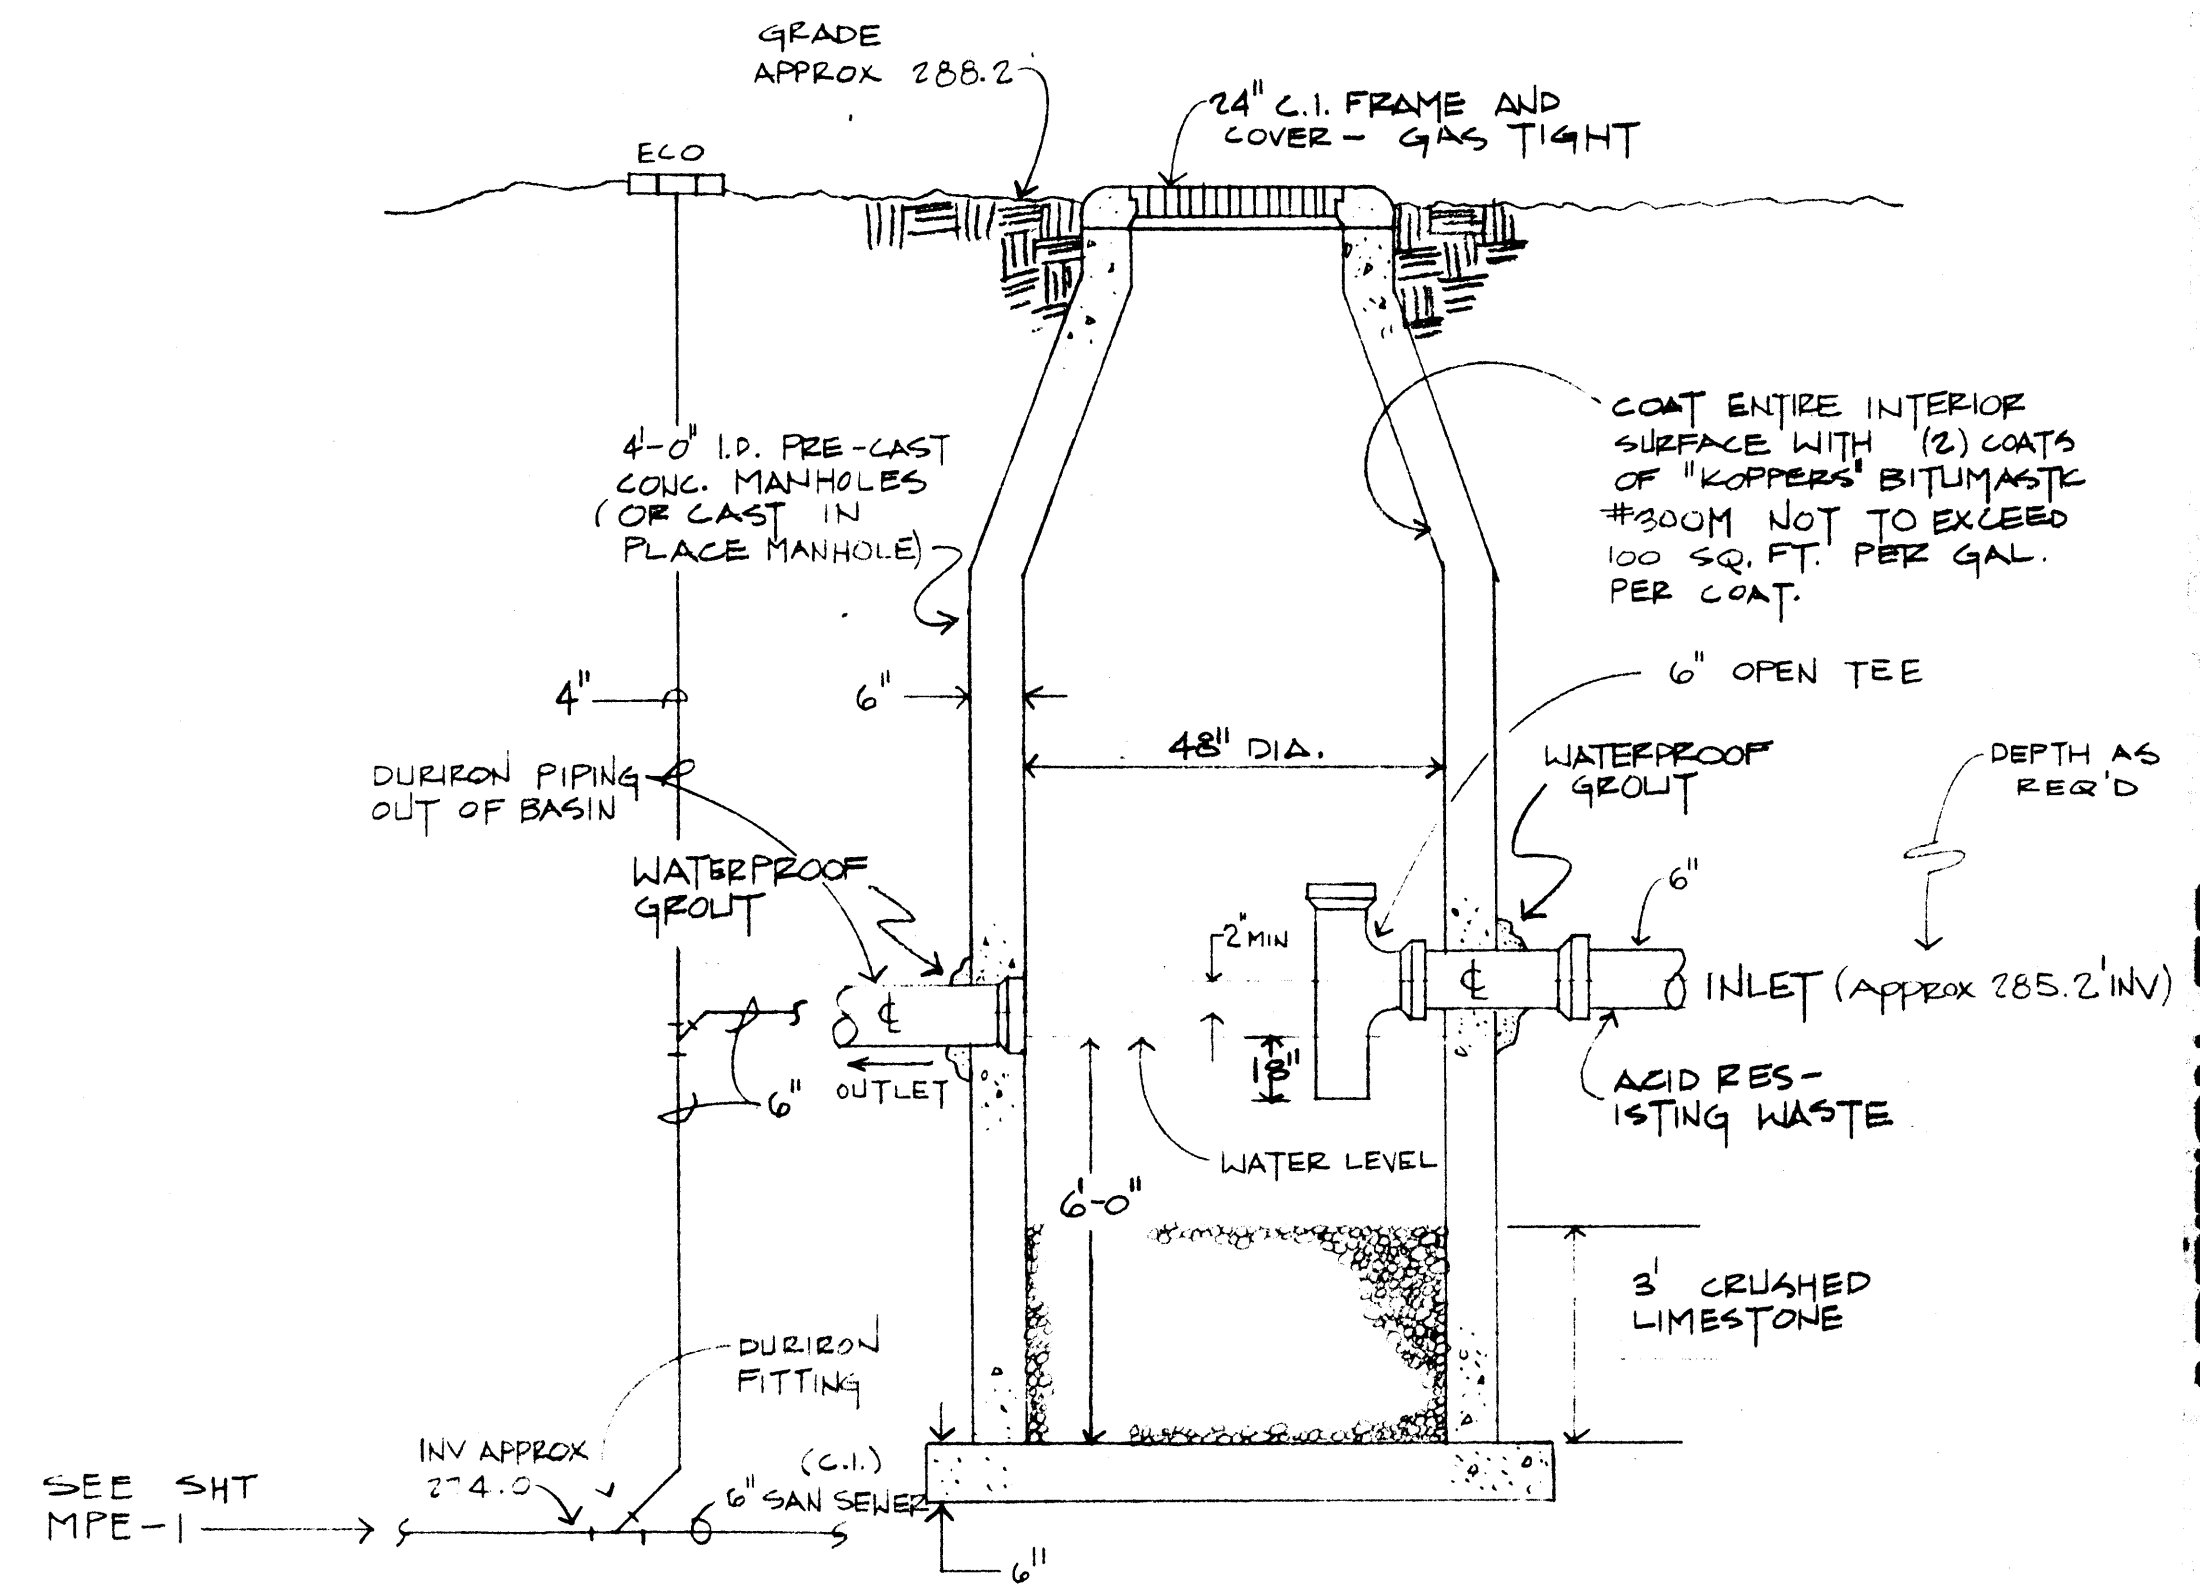 GRADE
APPROX 288.2
24" C.I. FRAME AND
COVER - GAS TIGHT
ECO
4'-0" I.D. PRE-CAST
CONC. MANHOLES
(OR CAST IN
PLACE MANHOLE)
COAT ENTIRE INTERIOR
SURFACE WITH (2) COATS
OF "KOPPERS" BITUMASTIC
#300M NOT TO EXCEED
100 SQ. FT. PER GAL.
PER COAT.
4"
6"
6" OPEN TEE
48" DIA.
WATERPROOF
GROUT
DEPTH AS
REQ'D
DURIRON PIPING
OUT OF BASIN
WATERPROOF
GROUT
6"
2" MIN
℄
℄
INLET (APPROX 285.2' INV)
OUTLET
6"
18"
ACID RES-
ISTING WASTE
WATER LEVEL
6'-0"
3' CRUSHED
LIMESTONE
DURIRON
FITTING
INV APPROX
274.0
(C.I.)
6" SAN SEWER
SEE SHT
MPE-1
6"